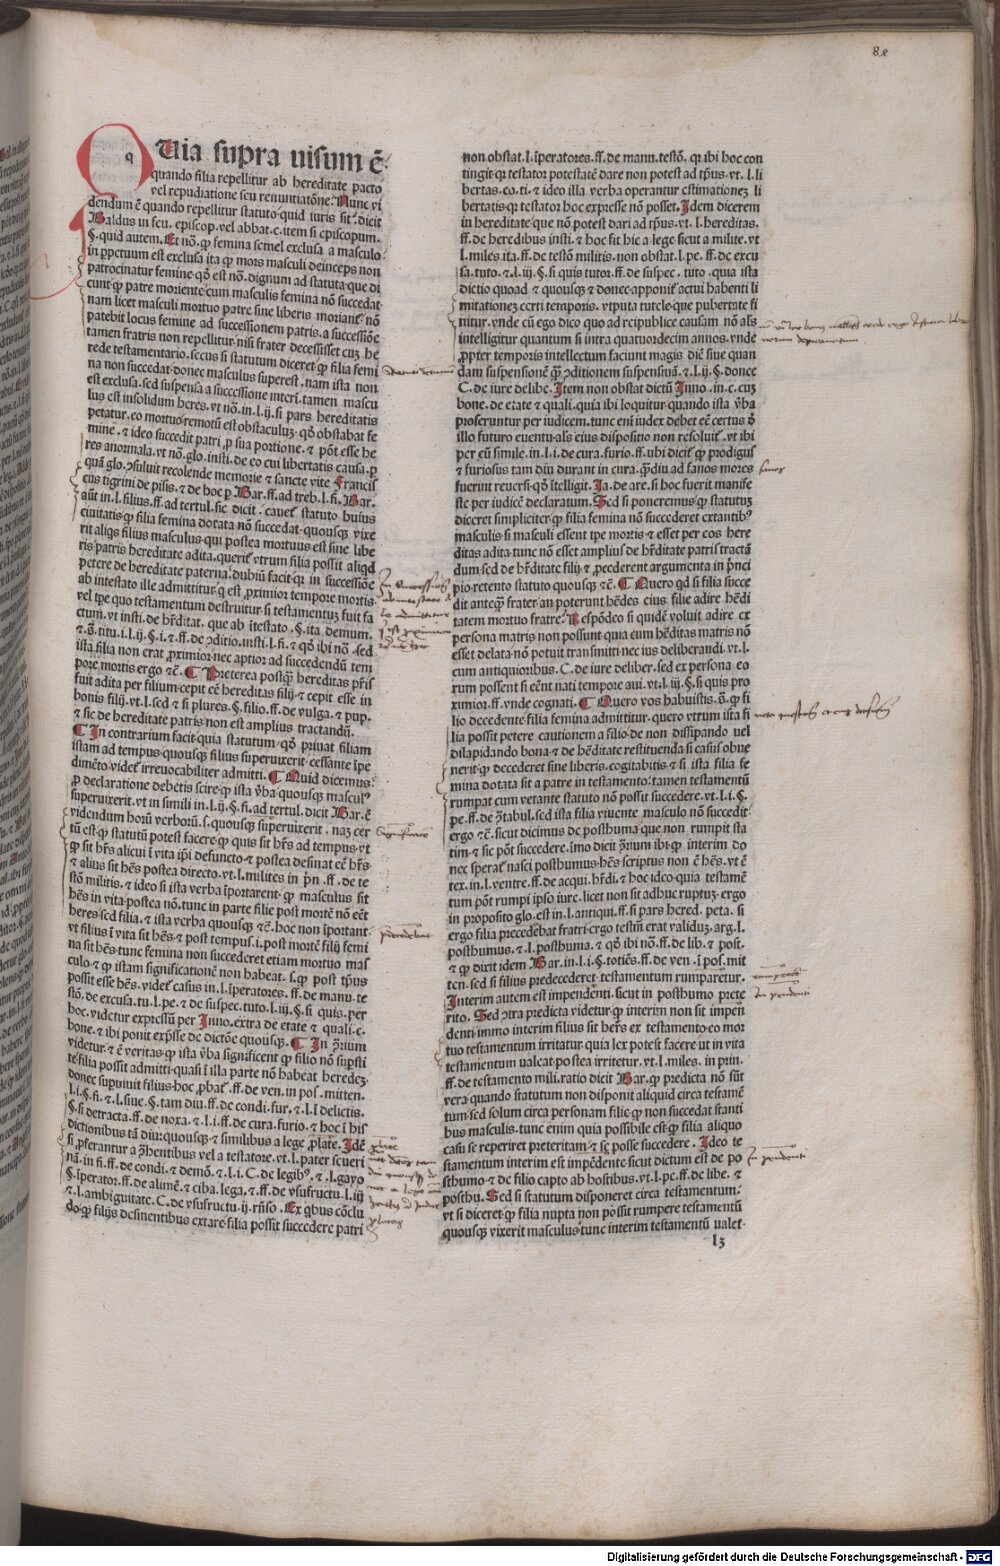 Quia supra uisum ē
quando filia repellitur ab hereditate pacto
vel repudiatione seu renuntiatōne. Nunc vi
dendum ē quando repellitur statuto quid iuris sit. dicit
Baldus in feu. episcop. vel abbat. c. item si episcopum.
§. quid autem. Et nō. ꝙ femina semel exclusa a masculo
in ppetuum est exclusa ita ꝙ mors masculi deinceps non
patrocinatur femine. qđ est nō. dignum ad statuta que di
cunt ꝙ patre moriente cum masculis femina nō succedat
nam licet masculi mortuo patre sine liberis moriant̄ nō
patebit locus femine ad successionem patris. a successiōe
tamen fratris non repellitur nisi frater decessisset cuȝ he
rede testamentario. secus si statutum diceret ꝙ filia femi
na non succedat donec masculus superest. nam ista non
est exclusa. sed suspensa a successione interī. tamen mascu
lus est insolidum heres. vt nō. in. l. ij. si pars hereditatis
petatur. eo mortuo remotū est obstaculuȝ. qđ obstabat fe
mine. ⁊ ideo succedit patri ꝓ sua portione. ⁊ pōt esse he
res anormala. vt nō. glo. insti. de eo cui libertatis causa. ꝓ
quā glo. ꝯsuluit recolende memorie ⁊ sancte vite Francis
cus tigrini de pisis. ⁊ de hoc ꝑ Bar. ff. ad treb. l. fi. Bar.
aūt in. l. filius. ff. ad tertul. sic dicit. cauet̄ statuto huius
ciuitatis ꝙ filia femina dotata nō succedat quousqȝ vixe
rit aliqs filius masculus qui postea mortuus est sine libe
ris patris hereditate adita. querit̄ vtrum filia possit aliqd
petere de hereditate paterna. dubiū facit qꝛ in successiōe
ab intestato ille admittitur q est ꝓximior tempore mortis
vel tpe quo testamentum destruitur si testamentuȝ fuit fa
ctum. vt insti. de hr̄ditat. que ab ītestato. §. ita demum.
⁊. ō. titu. i. l. ij. §. i. ⁊ ff. de ꝯditio. insti. l. fi. ⁊ qđ ibi nō. sed
ista filia non erat ꝓximior nec aptior ad succedendū tem
pore mortis ergo ⁊c̄. ¶ Preterea postqȝ hereditas pr̄is
fuit adita per filium cepit eē hereditas filij ⁊ cepit esse in
bonis filij. vt. l. sed ⁊ si plures. §. filio. ff. de vulga. ⁊ pup.
⁊ sic de hereditate patris non est amplius tractandū.
¶ In contrarium facit quia statutum qđ priuat filiam
istam ad tempus quousqȝ filius superuixerit cessante īpe
dimēto videt̄ irreuocabiliter admitti. ¶ Quid dicemus
ꝓ declaratione debetis scire ꝙ ista v̄ba quousqȝ mascul᾽
superuixerit. vt in simili in. l. ij. §. fi. ad tertul. dicit Bar. ē
videndum horū verborū. s. quousqȝ superuixerit. naȝ cer
tū est ꝙ statutū potest facere ꝙ quis sit hr̄s ad tempus. vt
ꝙ sit hr̄s alicui ī vita ip̄i defuncto ⁊ postea desinat eē hr̄s
⁊ alius sit hēs postea directo. vt. l. milites in pr̄n. ff. de te
stō. militis. ⁊ ideo si ista verba īportarent ꝙ masculus sit
hēs in vita postea nō. tunc in parte filie post mortē nō eēt
heres sed filia. ⁊ ista verba quousqȝ ⁊c̄. hoc non īportant
vt filius ī vita sit hēs ⁊ post tempus. i. post mortē filij femi
na sit hēs tunc femina non succederet etiam mortuo mas
culo ⁊ ꝙ istam significationē non habeat. s. ꝙ post tp̄us
possit esse hēs. videt̄ casus in. l. īperatores. ff. de manu. te
stō. de excusa. tu. l. pe. ⁊ de suspec. tuto. l. iij. §. si quis. per
hoc. videtur expressū per Inno. extra de etate ⁊ quali. c.
bone. ⁊ ibi ponit exp̄sse de dictōe quousqȝ. ¶ In ꝯrium
videtur. ⁊ ē veritas ꝙ ista v̄ba significent ꝙ filio nō supsti
te filia possit admitti quasi ī illa parte nō habeat heredeȝ
donec supuiuit filius. hoc ꝓbat̄. ff. de ven. in pos. mitten.
l. i. §. fi. ⁊. l. siue. §. tam diu. ff. de condi. fur. ⁊. l. ī delictis.
§. si detracta. ff. de noxa. ⁊. l. i. ff. de cura. furio. ⁊ hoc ī his
dictionibus tā diu. quousqȝ ⁊ similibus a lege ꝓlate. Idē
si ꝓferantur a ꝯhentibus vel a testatore. vt. l. pater seueri
nā. in fi. ff. de condi. ⁊ demō. ⁊. l. i. C. de legibȝ. ⁊. l. gayo
§. īperator. ff. de alimē. ⁊ ciba. lega. ⁊ ff. de vsufructu. l. iij
⁊. l. ambiguitate. C. de vsufructu. ij. rn̄so. Ex qbus cōclu
do ꝙ filijs desinentibus extare filia possit succedere patri
non obstat. l. īperatores. ff. de manu. testō. qꝛ ibi hoc con
tingit qꝛ testator potestatē dare non potest ad tp̄us. vt. l. li
bertas. eo. ti. ⁊ ideo illa verba operantur estimationeȝ li
bertatis qꝛ testator hoc expresse nō posset. Idem dicerem
in hereditate que nō potest dari ad tp̄us. vt. l. hereditas.
ff. de heredibus insti. ⁊ hoc fit hic a lege sicut a milite. vt
l. miles ita. ff. de testō militis. non obstat. l. pe. ff. de excu
sa. tuto. ⁊. l. iij. §. si quis tutor. ff. de suspec. tuto. quia ista
dictio quoad ⁊ quousqȝ ⁊ donec apponit̄ actui habenti li
mitationeȝ certi temporis. vtputa tutele que pubertate fi
nitur. vnde cū ego dico quo ad reipublice causam nō als
intelligitur quantum si intra quatuordecim annos. vnde
ꝓpter temporis intellectum faciunt magis diē siue quan
dam suspensionē ꝙ ꝯditionem suspensiuā. ⁊. l. ij. §. donec
C. de iure delibe. Item non obstat dictū Inno. in. c. cuȝ
bone. de etate ⁊ quali. quia ibi loquitur quando ista v̄ba
proferuntur per iudicem. tunc enī iudex debet eē certus đ
illo futuro euentu als eius dispositio non resoluit̄. vt ibi
per eū simile. in. l. i. de cura. furio. ff. ubi dicit̄ ꝙ prodigus
⁊ furiosus tam diu durant in cura. qȝdiu ad sanos mores
fuerint reuersi. qđ ītelligit. Ja. de are. si hoc fuerit manife
ste per iudicē declaratum. Sed si poneremus ꝙ statutuȝ
diceret simpliciter ꝙ filia femina nō succederet extantibȝ
masculis si masculi essent tpe mortis ⁊ esset per eos here
ditas adita tunc nō esset amplius de hr̄ditate patris tractā
dum sed de hr̄ditate filij ⁊ ꝓcederent argumenta in pn̄ci
pio retento statuto quousqȝ ⁊c̄. ¶ Quero qđ si filia succe
dit anteqȝ frater an poterunt hēdes eius filie adire hēdi
tatem mortuo fratre. Respōdeo si quidē voluit adire ex
persona matris non possunt quia eum hēditas matris nō
esset delata nō potuit transmitti nec ius deliberandi. vt. l.
cum antiquioribus. C. de iure deliber. sed ex persona eo
rum possent si eēnt nati tempore aui. vt. l. iij. §. si quis pro
ximior. ff. vnde cognati. ¶ Quero vos habuistis. ō. ꝙ fi
lio decedente filia femina admittitur. quero vtrum ista fi
lia possit petere cautionem a filio de non dissipando vel
dilapidando bona ⁊ de hēditate restituenda si casus obue
nerit ꝙ decederet sine liberis. cogitabitis ⁊ si ista filia fe
mina dotata sit a patre in testamento. tamen testamentū
rumpat cum vetante statuto nō possit succedere. vt. l. i. §.
pe. ff. de ꝯtabul. sed ista filia viuente masculo nō succedit
ergo ⁊c̄. sicut dicimus de posthuma que non rumpit sta
tim. ⁊ sic pōt succedere. īmo dicit ꝯrium ibi ꝙ interim do
nec sperat̄ nasci posthumus hēs scriptus non ē hēs. vt ē
tex. in. l. ventre. ff. de acqui. hr̄di. ⁊ hoc ideo quia testamē
tum pōt rumpi ipso iure. licet non sit adhuc ruptuȝ. ergo
in proposito glo. est in. l. antiqui. ff. si pars hered. peta. si
ergo filia precedēbat fratri ergo testm̄ erat validuȝ. arg. l.
posthumus. ⁊. l. posthuma. ⁊ qđ ibi nō. ff. de lib. ⁊ post.
⁊ ꝙ dixit idem Bar. in. l. i. §. totiēs. ff. de ven. ī pos. mit
ten. sed si filius predecederet testamentum rumparetur.
Interim autem est impendēti. sicut in posthumo prete
rito. Sed ꝯtra predicta videtur ꝙ interim non sit impen
denti. immo interim filius sit hers ex testamento. eo mor
tuo testamentum irritatur quia lex potest facere ut in vita
testamentum ualeat postea irritetur. vt. l. miles. in prin.
ff. de testamento mili. ratio dicit Bar. ꝙ predicta nō sūt
vera quando statutum non disponit aliquid circa testamē
tum. sed solum circa personam filie ꝙ non succedat stanti
bus masculis. tunc enim quia possibile est ꝙ filia aliquo
casu se reperiret preteritam. ⁊ se posse succedere. Ideo te
stamentum interim est impēdente. sicut dictum est de po
sthumo. ⁊ de filio capto ab hostibus. vt. l. pe. ff. de libe. ⁊
posthu. Sed si statutum disponeret circa testamentum.
vt si diceret ꝙ filia nupta non possit rumpere testamentū
quousqȝ vixerit masculus. tunc interim testamentū ualet.
l3
Digitalisierung gefördert durch die Deutsche Forschungsgemeinschaft - DFG